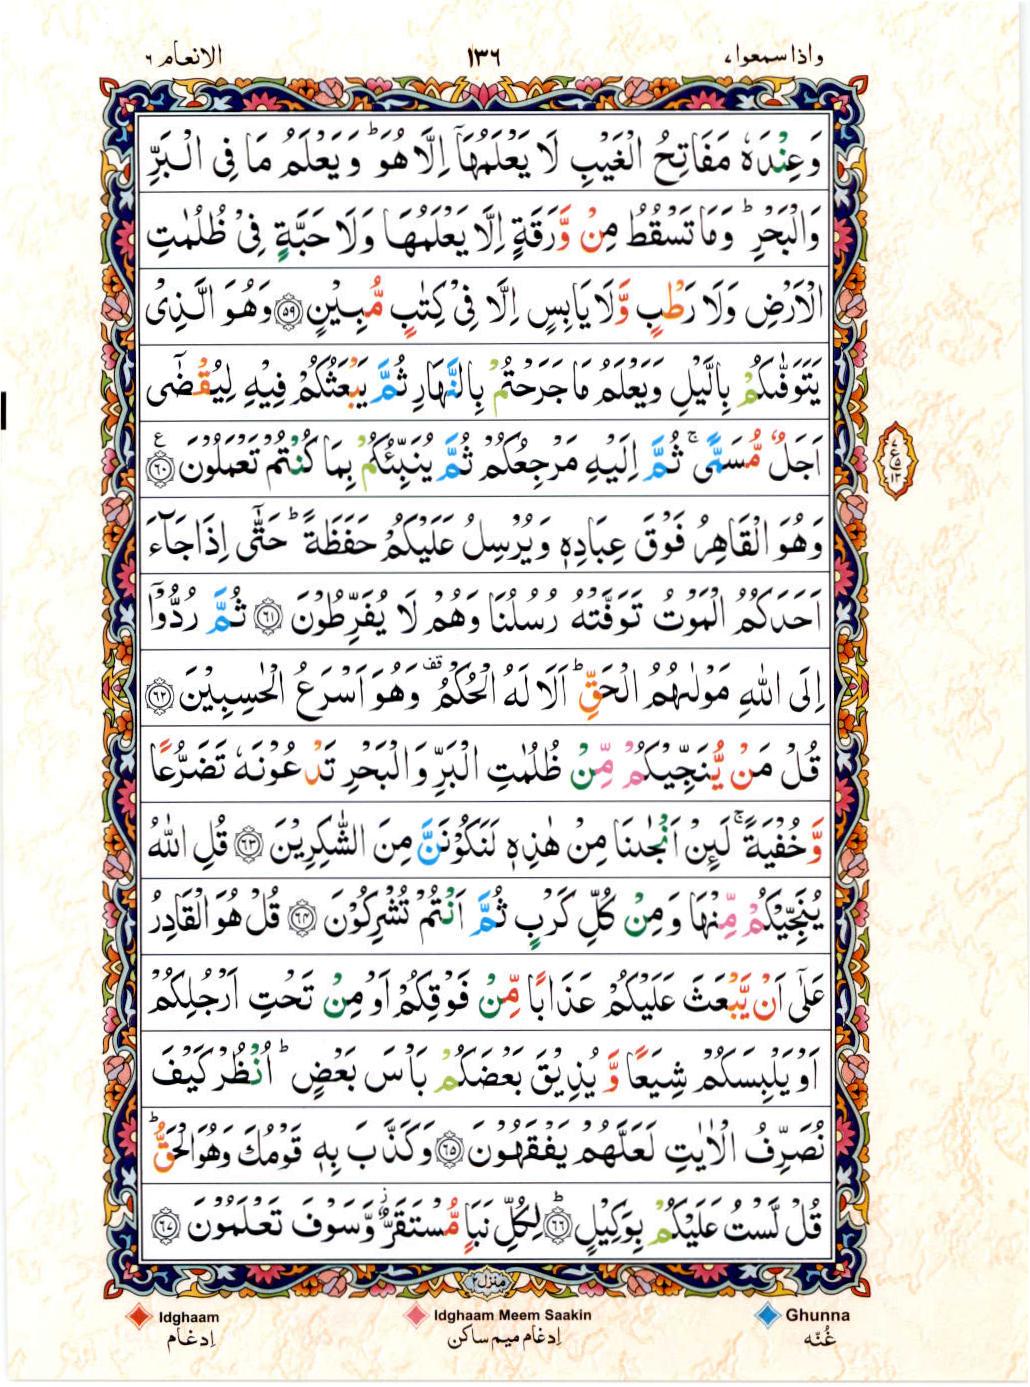 واذا سمعوا ٧
١٣٦
الانعام ٦
وَعِنْدَهٗ مَفَاتِحُ الْغَيْبِ لَا يَعْلَمُهَاۤ اِلَّا هُوَ ؕ وَيَعْلَمُ مَا فِى الْبَرِّ
وَالْبَحْرِ ؕ وَمَا تَسْقُطُ مِنْ وَّرَقَةٍ اِلَّا يَعْلَمُهَا وَلَا حَبَّةٍ فِىْ ظُلُمٰتِ
الْاَرْضِ وَلَا رَطْبٍ وَّلَا يَابِسٍ اِلَّا فِىْ كِتٰبٍ مُّبِيْنٍ ﴿٥٩﴾ وَهُوَ الَّذِىْ
يَتَوَفّٰٮكُمْ بِالَّيْلِ وَيَعْلَمُ مَا جَرَحْتُمْ بِالنَّهَارِ ثُمَّ يَبْعَثُكُمْ فِيْهِ لِيُقْضٰٓى
اَجَلٌ مُّسَمًّى ۚ ثُمَّ اِلَيْهِ مَرْجِعُكُمْ ثُمَّ يُنَبِّئُكُمْ بِمَا كُنْتُمْ تَعْمَلُوْنَ ﴿٦٠﴾ ع
وَهُوَ الْقَاهِرُ فَوْقَ عِبَادِهٖ وَيُرْسِلُ عَلَيْكُمْ حَفَظَةً ؕ حَتّٰٓى اِذَا جَآءَ
اَحَدَكُمُ الْمَوْتُ تَوَفَّتْهُ رُسُلُنَا وَهُمْ لَا يُفَرِّطُوْنَ ﴿٦١﴾ ثُمَّ رُدُّوْۤا
اِلَى اللّٰهِ مَوْلٰٮهُمُ الْحَقِّ ؕ اَلَا لَهُ الْحُكْمُ قف وَهُوَ اَسْرَعُ الْحٰسِبِيْنَ ﴿٦٢﴾
قُلْ مَنْ يُّنَجِّيْكُمْ مِّنْ ظُلُمٰتِ الْبَرِّ وَالْبَحْرِ تَدْعُوْنَهٗ تَضَرُّعًا
وَّخُفْيَةً ۚ لَئِنْ اَنْجٰٮنَا مِنْ هٰذِهٖ لَنَكُوْنَنَّ مِنَ الشّٰكِرِيْنَ ﴿٦٣﴾ قُلِ اللّٰهُ
يُنَجِّيْكُمْ مِّنْهَا وَمِنْ كُلِّ كَرْبٍ ثُمَّ اَنْتُمْ تُشْرِكُوْنَ ﴿٦٤﴾ قُلْ هُوَ الْقَادِرُ
عَلٰٓى اَنْ يَّبْعَثَ عَلَيْكُمْ عَذَابًا مِّنْ فَوْقِكُمْ اَوْ مِنْ تَحْتِ اَرْجُلِكُمْ
اَوْ يَلْبِسَكُمْ شِيَعًا وَّ يُذِيْقَ بَعْضَكُمْ بَاْسَ بَعْضٍ ؕ اُنْظُرْ كَيْفَ
نُصَرِّفُ الْاٰيٰتِ لَعَلَّهُمْ يَفْقَهُوْنَ ﴿٦٥﴾ وَكَذَّبَ بِهٖ قَوْمُكَ وَهُوَ الْحَقُّ ؕ
قُلْ لَّسْتُ عَلَيْكُمْ بِوَكِيْلٍ ؕ ﴿٦٦﴾ لِكُلِّ نَبَاٍ مُّسْتَقَرٌّ ز وَّسَوْفَ تَعْلَمُوْنَ ﴿٦٧﴾
منزل ٢
Idghaam
ادغام
Idghaam Meem Saakin
ادغام ميم ساكن
Ghunna
غُنّه